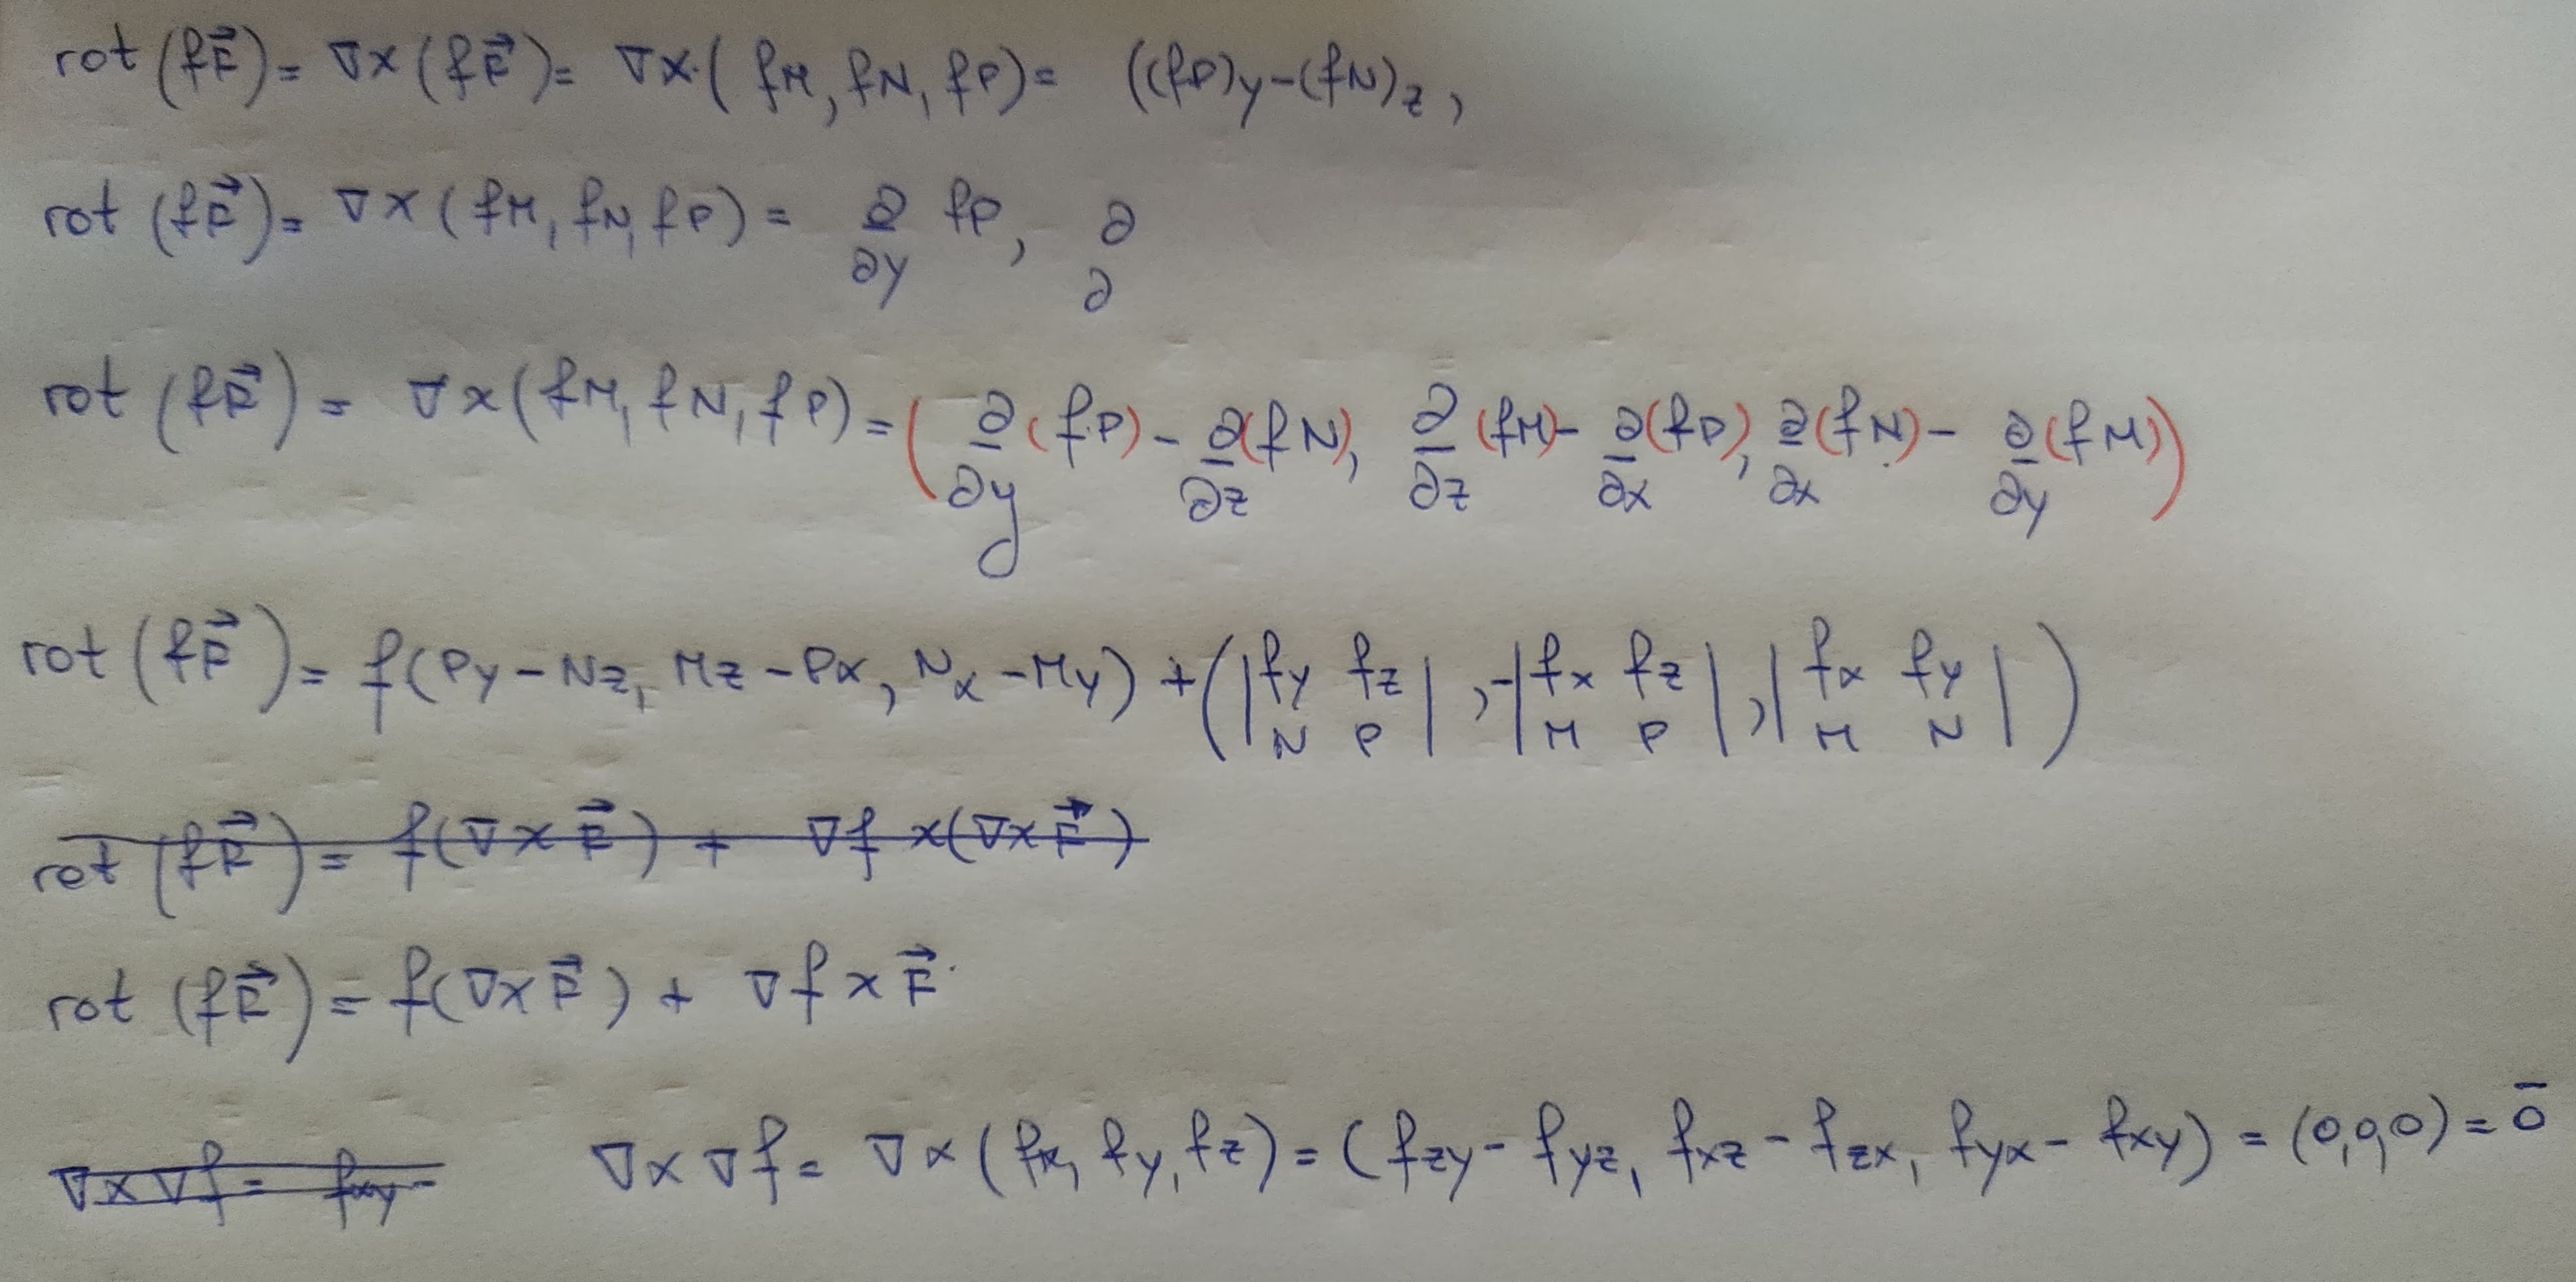 rot (fF⃗) = ∇×(fF⃗) = ∇×(fM, fN, fP) = ((fP)y-(fN)z,
rot (fF⃗) = ∇×(fM, fN, fP) = ∂/∂y fP, ∂/∂
rot (fF⃗) = ∇×(fM, fN, fP) = (∂/∂y (fP) - ∂/∂z (fN), ∂/∂z (fM) - ∂/∂x (fP), ∂/∂x (fN) - ∂/∂y (fM))
rot (fF⃗) = f(Py - Nz, Mz - Px, Nx - My) + (|fy fz; N P|, -|fx fz; M P|, |fx fy; M N|)
rot (fF⃗) = f(∇×F⃗) + ∇f ×(∇×F⃗)
rot (fF⃗) = f(∇×F⃗) + ∇f × F⃗
∇×∇f = fxy - ∇×∇f = ∇×(fx, fy, fz) = (fzy - fyz, fxz - fzx, fyx - fxy) = (0,0,0) = 0̄